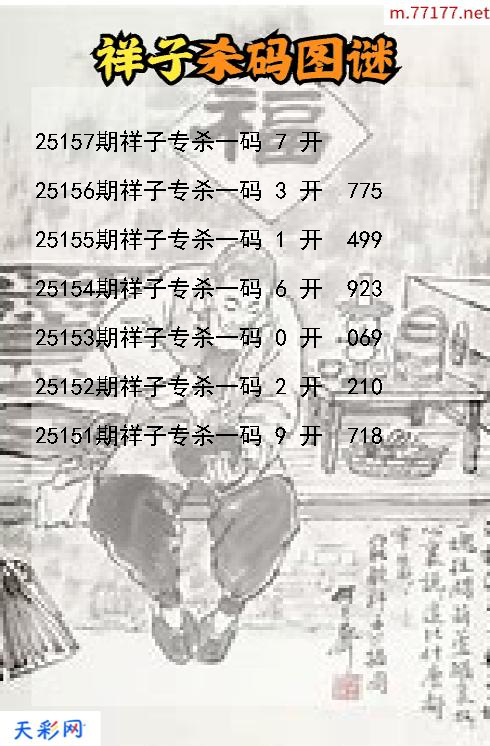 m.77177.net
祥子杀码图谜
福
25157期祥子专杀一码 7 开
25156期祥子专杀一码 3 开 775
25155期祥子专杀一码 1 开 499
25154期祥子专杀一码 6 开 923
25153期祥子专杀一码 0 开 069
25152期祥子专杀一码 2 开 210
25151期祥子专杀一码 9 开 718
天彩网